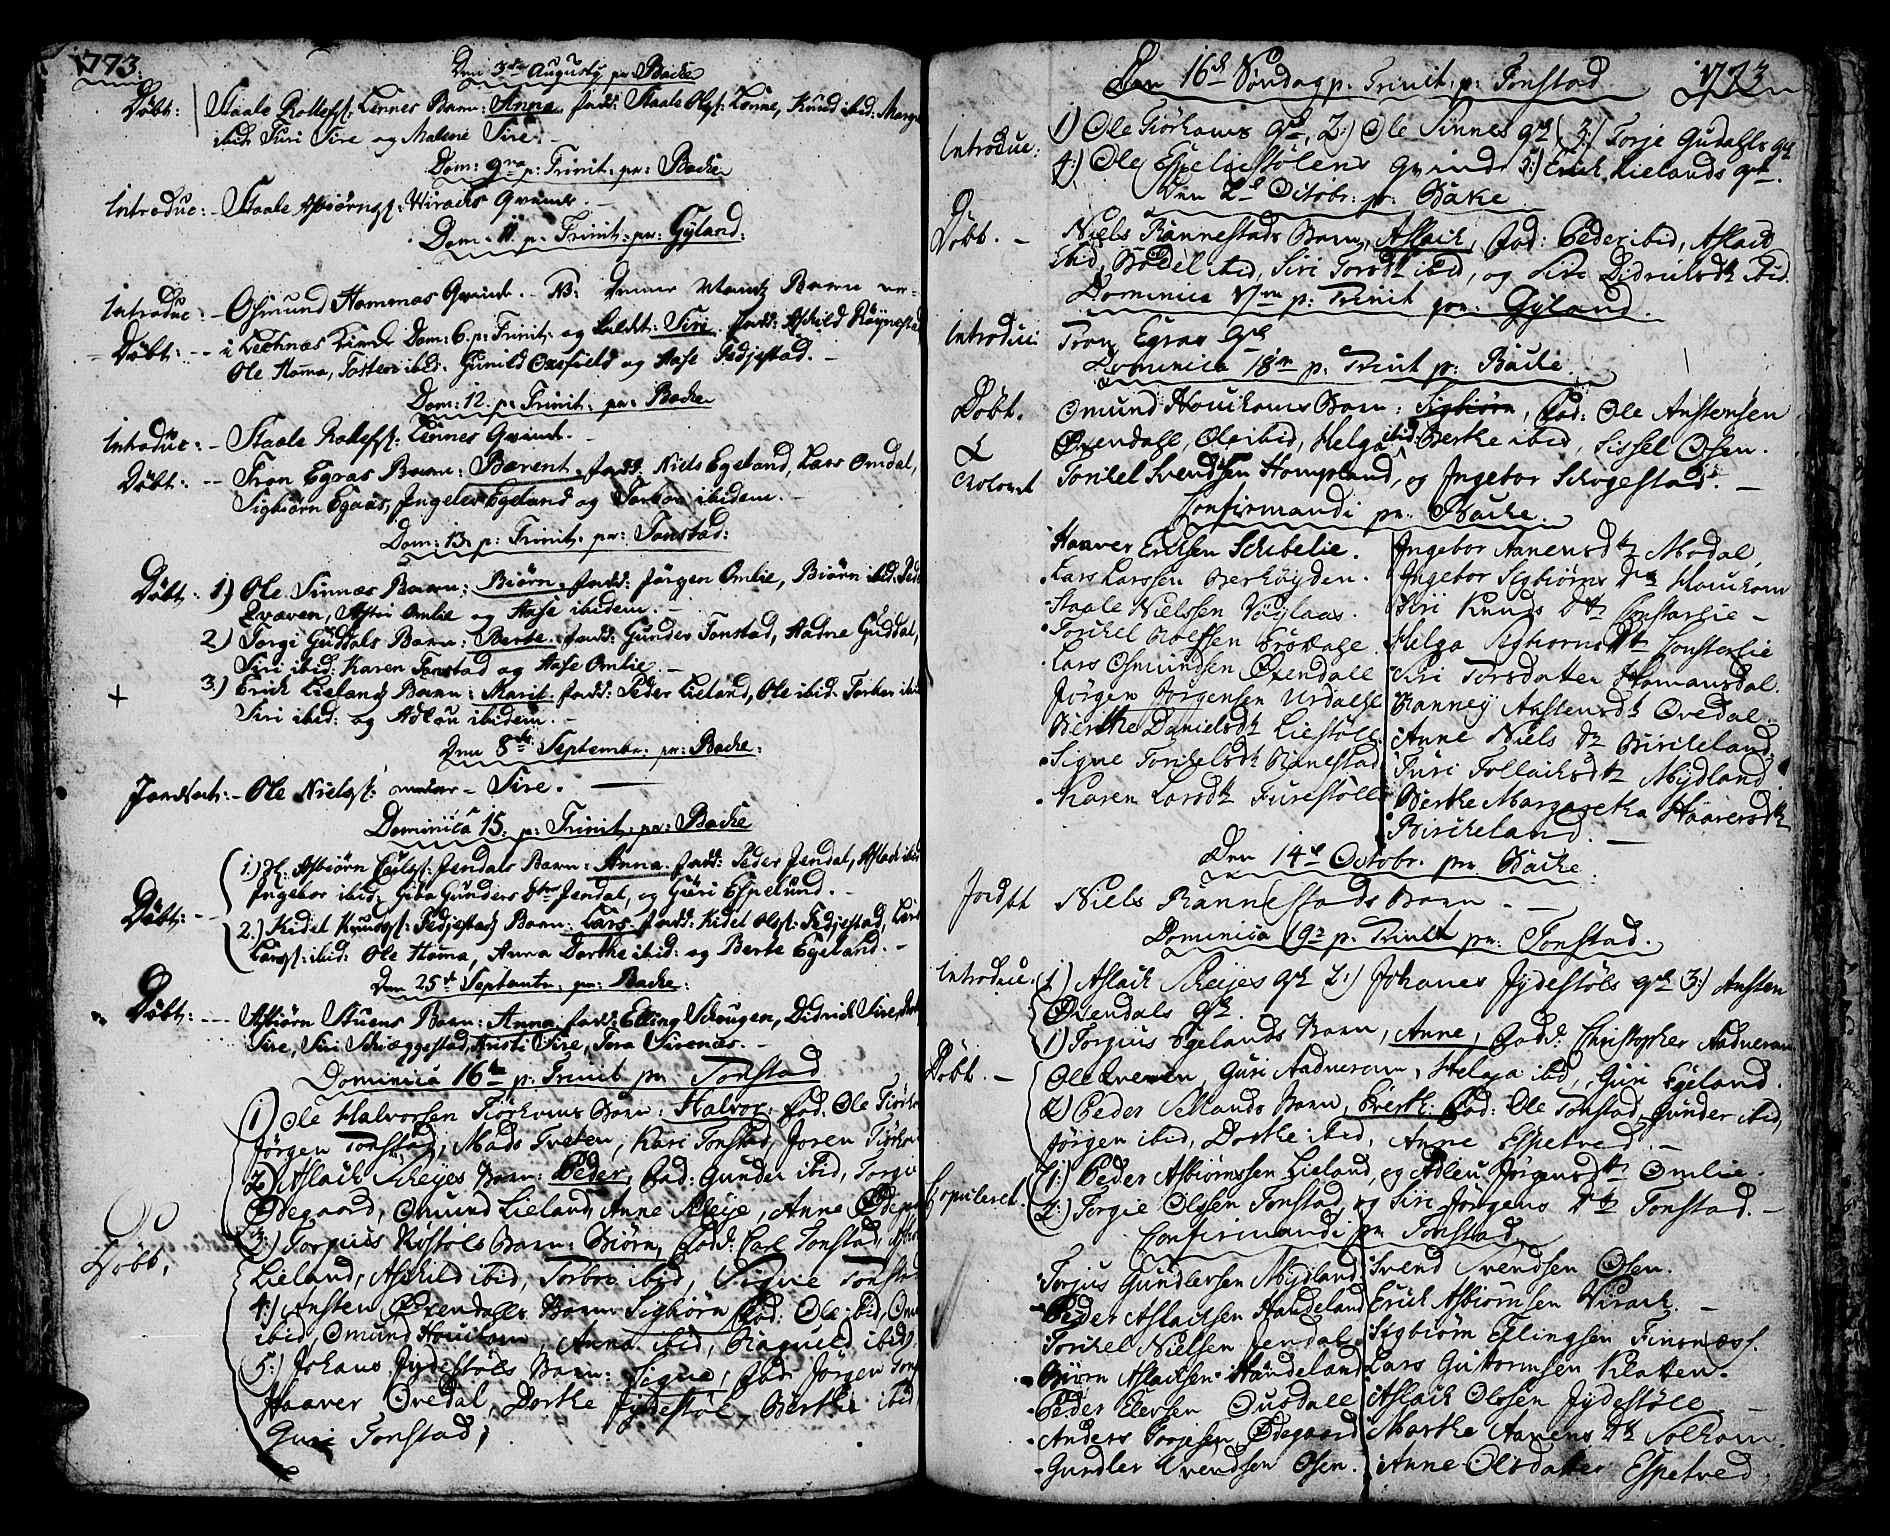 1773.
Den 3die Augusty pr: Backe
Döbt: Staale Rollefs: Lennes Barn: Anna. fadd: Staale Ols: Lönne, Knud ibid:
ibid: Siri Sire og Malene Sire. -
Dom: 9na p: Trinit: pr: Backe
Introduc: - Staale Asbiörns: Virachs Qvinde. -
Dom: 11. p: Trinit: pr: Gyland:
Introduc: - Osmund Hommas Qvinde. - NB: Barn
Döbt: -- i Dom: 6. p: Trinit: og kaldt: Siri. fadd: Askild Röynestad
Ole Homma, Tosten ibid: Gunild og Aase Fedjestad. -
Dom: 12. p: Trinit: pr: Backe
Introduc: - Staale Rollefs: Lennes Qvinde. -
Döbt: -- Tron Egras Barn: Barent. fadd: Niels Egeland, Lars Omdal,
Sigbiörn Egaas, Jngeler Egeland og Torbor ibidem. -
Dom: 13. p: Trinit: pr: Tonstad:
Döbt: 1.) Ole Sinnes Barn: Biörn. fadd: Jörgen Omlie, Biörn ibid: Peder
Qvæven, Astri Omlie og Aase ibidem. -
2.) Torgi Guddals Barn: Berte. fadd: Gunder Tonstad, Aadne Guddal,
Siri ibid: Karen Tonstad og Aase Omlie. -
+ 3.) Erick Lielands Barn: Marit. fadd: Peder Lieland, Ole ibid: Torbor ibid
Siri ibid: og Adlou ibidem. -
Den 8de Septembr: pr: Backe:
Jordfæst: - Ole Niels: Sire.
Dominica 15. p: Trinit: pr: Backe
1.) Asbiörn Jendals Barn: Anna. fadd: Peder Jendal, Aslach ibid
Jngebor ibid: Giba Gunders Dtr Jendal, og Guri Espelund. -
Döbt: -- 2.) Kidet Knuds: Fedjestad Barn: Lars. fadd: Kidet Ols: Fedjestad, Lars
Lars: ibid: Ole Homma, Anna Dorthe ibid: og Berte Egeland. -
Den 25de Septembr: pr: Backe:
Döbt: --- Asbiörn Stuens Barn: Anna. fadd: Elling Schougen, Didrich Sire,
Sire, Siri Schreggestad, Kirsti Sire, Tora Sirenæs. -
Dominica 16te p: Trinit pr: Tonstad
1) Ole Halvorsen Tiörhoms Barn: Halvor. fad: Ole Tiörhom
Jörgen Tonstad, Mads Tveten, Kari Tonstad, Joren Tiörhom
2) Aslach Schejes Barn: Peder, fad: Gunder ibid, Torgie
Ödegaard, Omund Lieland, Anne Scheje, Anne Ödegaard
3) Torgius Röstöls Barn: Biörn, fadd: Carl Tonstad,
Döbt, Lieland, Askild ibid, Torbor ibid, Signe Tonstad
4) Ansten Öxendals Barn Sigbiörn fad: Ole ibid,
ibid, Omund Houchom, Anna ibid, Ragnild ibid,
5) Johans Jydestöls Barn: Signe, fad: Jörgen Tonstad
Haaver Ovedal, Dorthe Jydestöl, Berthe ibid
Guri Tonstad,
Den 16de Söndag p: Trinit. p: Tonstad 1773
Introduc: 1) Ole Tiörhoms qvd, 2) Ole Sinnes qvd 3) Torje Gudahls qv
4) Ole Espeliestölens qvinde 5) Erich Lielands qv.
Den 2d Octobr: pr: Bake
Döbt. - Niels Rannestads Barn, Aslach, fad: Peder ibid, Aslach
ibid, Bodel ibid, Siri Torsd ibid, og Siri Didrichsdtr ibid.
Dominica 17m p: Trinit pr: Gyland.
Introduc: Tron Egras qvd
Dominica 18m p: Trinit p: Backe.
Döbt. Omund Houchoms Barn: Sigbiörn, fad: Ole Anstensen
& Öxendahl, Ole ibid, Helga ibid Berthe ibid, Sissel Osen.
Torckel Svendsen Hompland, og Jngebor Schogestad. -
Confirmandi pr: Backe.
Haaver Erichsen Schibelie.
Lars Larssen Berhöyden.
Staale Nielssen Vöylaas.
Torckel
Lars Osmundsen Öxendall
Jörgen Jörgensen Urdalsl
Berthe Danielsdtr Liestöll
Signe Torckelsdtr Ranestad
Karen Larsdtr Furestöll
Jngebor Aanensdtr Modal,
Jngebor Sigbiörns Dtr Houchom
Siri Knuds Dtr Constoslie -
Helga Sigbiörns Dtr Constoslie
Siri Torsdatter Homansdal.
Ranney Anstensdtr Ovedal.
Anne Niels Dtr Bircheland
Turi Follachsdtr Mydland.
Berthe Margaretha Haaversdtr
Bircheland. -
Den 14d Octobr. pr: Backe.
Jordfst Niels Rannestads Barn. -
Dominica 19d p: Trinit pr: Tonstad.
Introduc: 1) Aslach Schejes qvd 2) Johanes Jydestöls qvd 3) Ansten
Öxendals qvd.
Döbt. - 1) Torgius Egelands Barn, Anne, fadd: Christopher Aadneram
Ole Qveven, Guri Aadneram, Helga ibid, Guri Egeland.
2) Peder Sellands Barn, Berth: fad: Ole Tonstad, Gunder ibid,
Jörgen ibid, Dorthe ibid, Anne Espetved. -
Copuleret 1) Peder Asbiörnssen Lieland, og Adleu Jörgensdtr Omlie.
2) Torgie Olssen Tonstad og Siri Jörgens Dtr Tonstad. -
Confirmandi pr: Tonstad
Torjus Gundlersen Mydland
Peder Aslachsen Handeland
Torckel Nielsen Jendal
Biörn Aslachsen Handeland
Peder Elersen Ousdall
Anders Torjesen Ödegaard
Gundler Svendsen Osen.
Svend Svendsen Osen.
Erich Asbiörnsen Virach. -
Sigbiörn Ellingsen Finsnæss.
Lars Guttormsen Klotten.
Aslach Olosen Jydestöll. -
Marthe Aanens Dtr Solhom.
Anne Olsdatter Espetved.